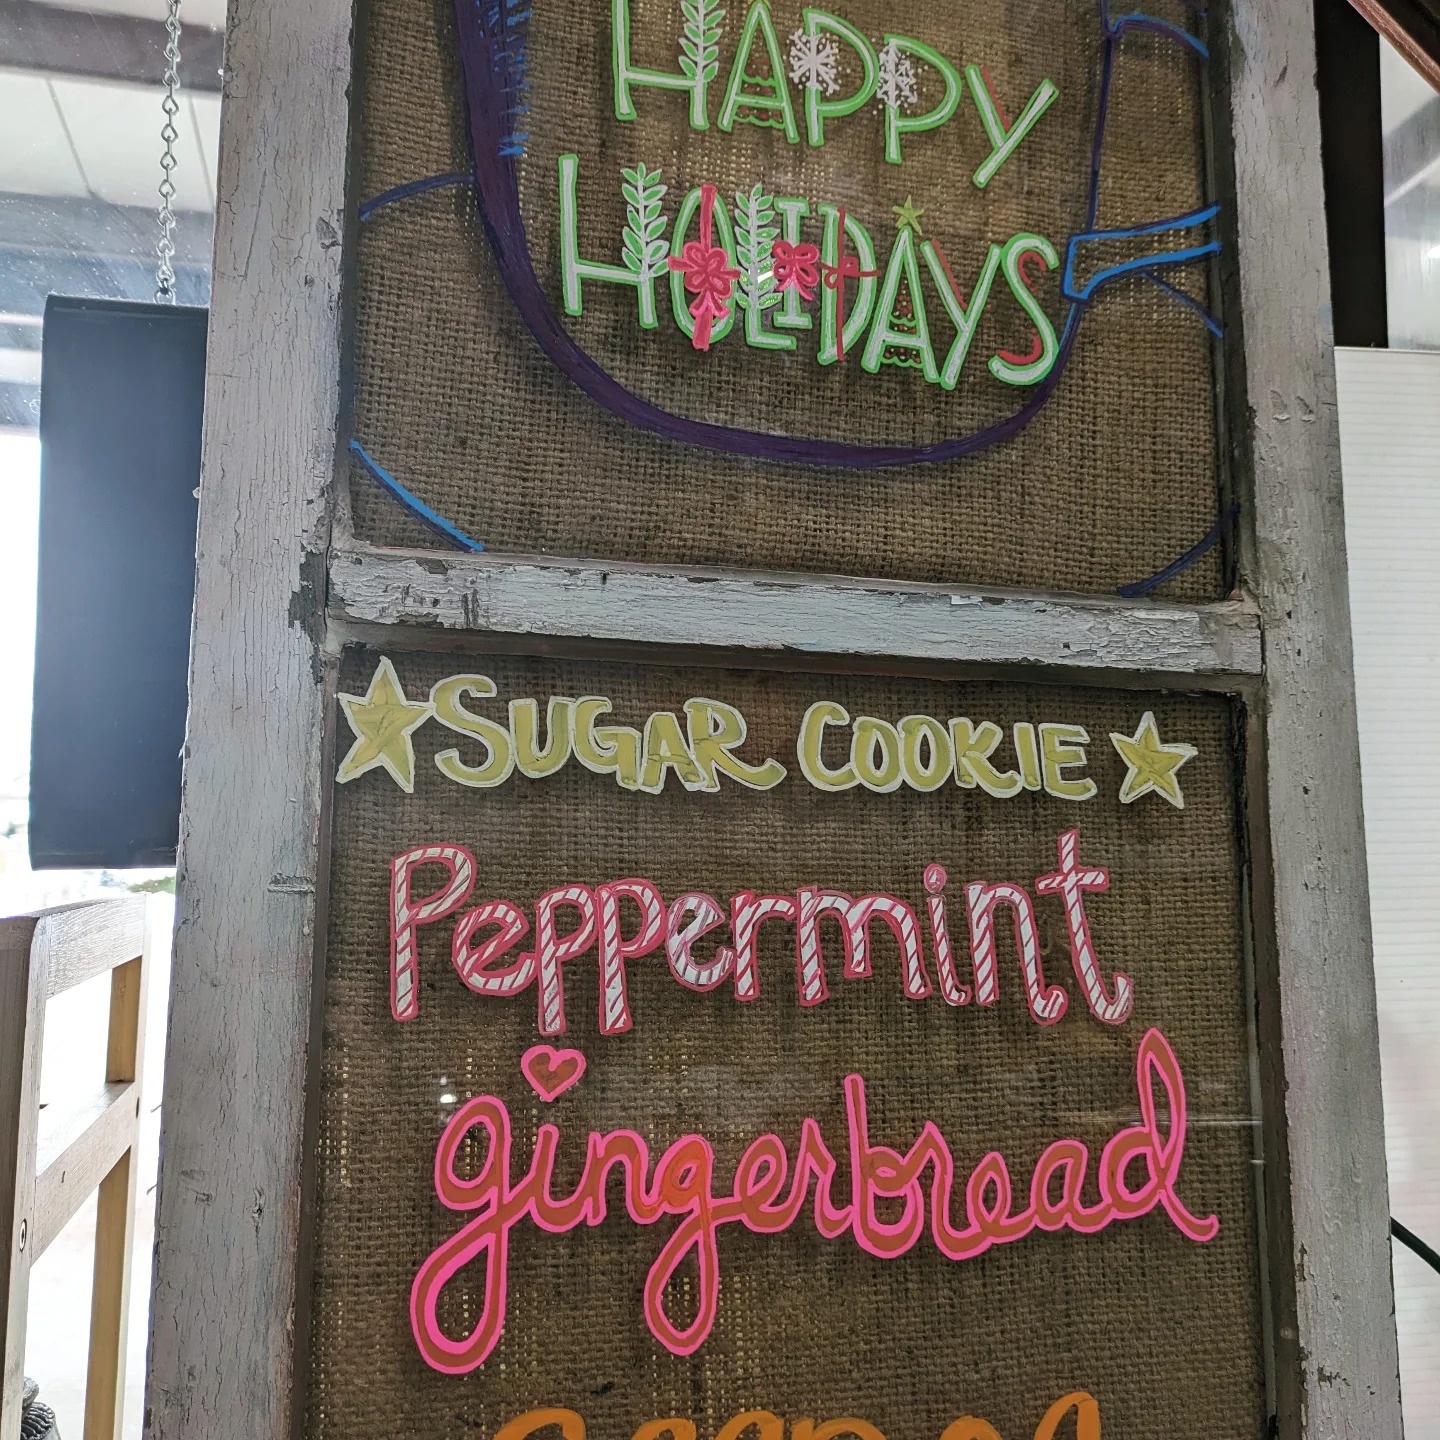 HAPPY
HOLIDAYS
SUGAR COOKIE
Peppermint
gingerbread